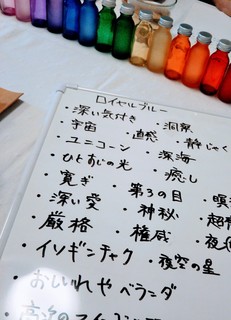 ロイヤルブルー
・深い気付き ・洞察
・宇宙 ・直感 ・静じゃく
・ユニコーン ・深海
・ひとすじの光 ・癒し
・寛ぎ ・第3の目 ・瞑
・深い愛 ・神秘 ・超
・厳格 ・権威 ・夜
・イソギンチャク ・夜空の星
・おしいれやベランダ